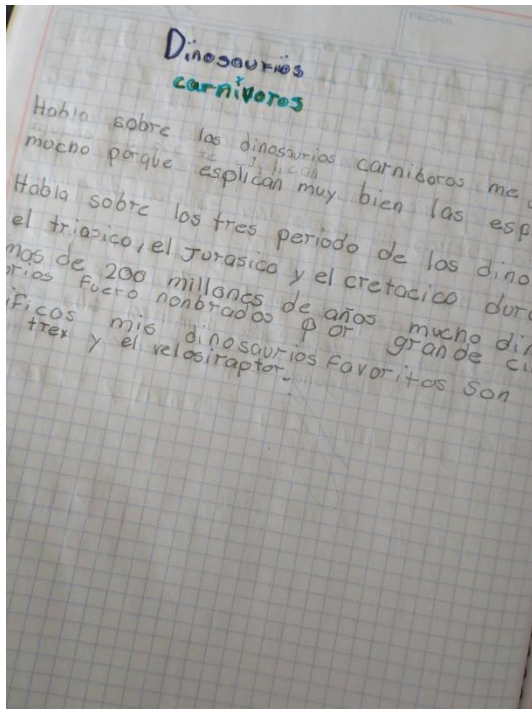 FECHA
Dinosaurios
carnivoros
Habla sobre los dinosaurios carniboros me
mucho porque esplican muy bien las esp
Habla sobre los tres periodo de los dino
el triasico, el Jurasico y el cretacico dur
mas de 200 millones de años mucho din
orios fuero nonbrados por grande ci
ificos mis dinosaurios favoritos son
trex y el velosiraptor.